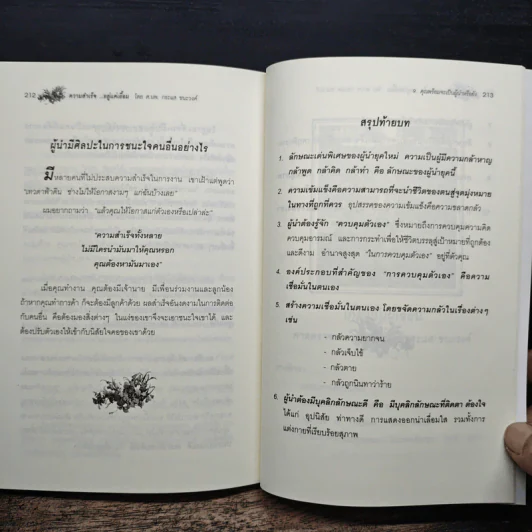 212
ความสำเร็จ ...อยู่แค่เอื้อม โดย
ผู้นำมีศิลปะในการชนะใจคนอื่นอย่างไร
มีหลายคนที่ไม่ประสบความสำเร็จในการงาน เขาเฝ้าแต่พูดว่า
"เทวดาฟ้าดิน ช่างไม่ให้โอกาสงามๆ แก่ฉันบ้างเลย"
ผมอยากถามว่า "แล้วคุณได้ให้โอกาสแก่ตัวเองหรือเปล่าล่ะ"
"ความสำเร็จทั้งหลาย
ไม่มีใครนำมันมาให้คุณหรอก
คุณต้องหามันมาเอง"
เมื่อคุณทำงาน คุณต้องมีเจ้านาย มีเพื่อนร่วมงานและลูกน้อง
ถ้าหากคุณทำการค้า ก็จะต้องมีลูกค้าด้วย ผลสำเร็จอันงดงามในการติดต่อ
กับคนอื่น คือต้องมองสิ่งต่างๆ ในแง่ของเขาจึงจะเอาชนะใจเขาได้ และ
ต้องปรับตัวเองให้เข้ากับนิสัยใจคอของเขาด้วย
๙. คุณพร้อมจะเป็นผู้นำหรือยัง 213
สรุปท้ายบท
1. ลักษณะเด่นพิเศษของผู้นำยุคใหม่ ความเป็นผู้มีความกล้าหาญ
กล้าพูด กล้าคิด กล้าทำ คือ ลักษณะของผู้นำยุคนี้
2. ความเข้มแข็งคือความสามารถที่จะนำชีวิตของตนสู่จุดมุ่งหมาย
ในทางที่ถูกที่ควร อุปสรรคของความเข้มแข็งคือความขลาดกลัว
3. ผู้นำต้องรู้จัก "ควบคุมตัวเอง" ซึ่งหมายถึงการควบคุมความคิด
ควบคุมอารมณ์ และการกระทำเพื่อให้ชีวิตบรรลุสู่เป้าหมายที่ถูกต้อง
และดีงาม อำนาจสูงสุด "ในการควบคุมตัวเอง" อยู่ที่ตัวคุณ
4. องค์ประกอบที่สำคัญของ "การควบคุมตัวเอง" คือความ
เชื่อมั่นในตนเอง
5. สร้างความเชื่อมั่นในตนเอง โดยขจัดความกลัวในเรื่องต่างๆ
เช่น
- กลัวความยากจน
- กลัวเจ็บไข้
- กลัวตาย
- กลัวถูกนินทาว่าร้าย
6. ผู้นำต้องมีบุคลิกลักษณะดี คือ มีบุคลิกลักษณะที่ติดตา ต้องใจ
ได้แก่ อุปนิสัย ท่าทางดี การแสดงออกน่าเลื่อมใส รวมทั้งการ
แต่งกายที่เรียบร้อยสุภาพ